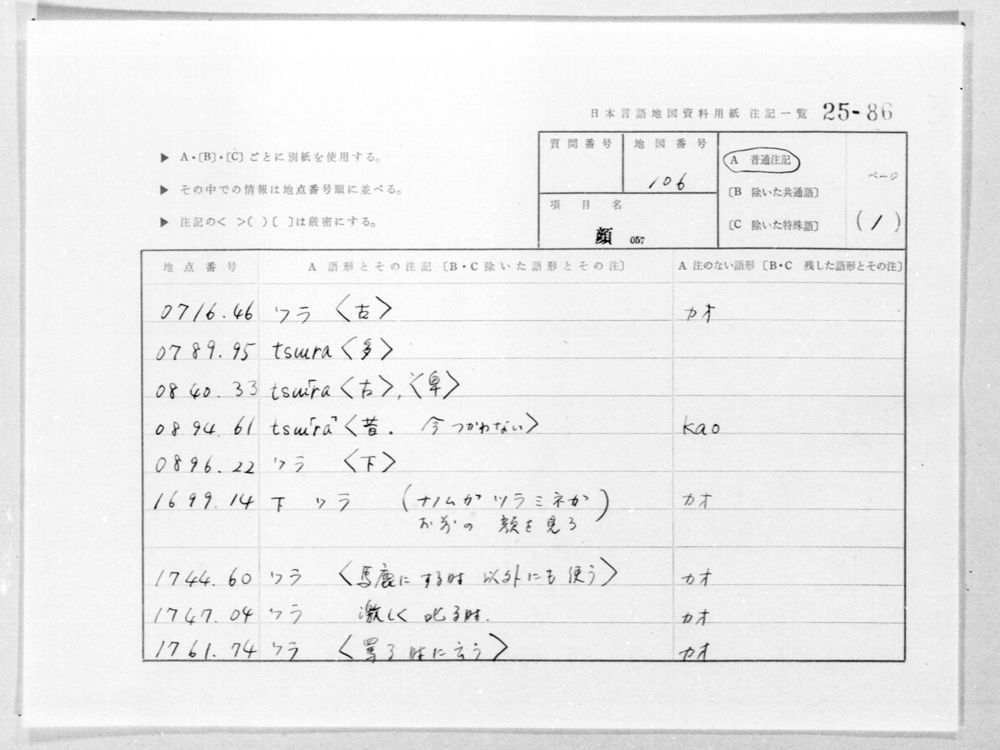 日本言語地図資料用紙 注記一覧 25-86
▶ A・〔B〕・〔C〕ごとに別紙を使用する。
▶ その中での情報は地点番号順に並べる。
▶ 注記の< >( )〔 〕は厳密にする。
質問番号 地図番号
106
項目名
顔 057
A 普通注記
〔B 除いた共通語〕
〔C 除いた特殊語〕
ページ
(1)
地点番号 A 語形とその注記〔B・C 除いた語形とその注〕 A 注のない語形〔B・C 残した語形とその注〕
0716.46 ツラ 〈古〉 カオ
0789.95 tsɯra〈多〉
0840.33 tsɯ「ra〈古〉,〈卑〉
0894.61 tsɯ「ra﹁〈昔. 今つかわない〉 kao
0896.22 ツラ 〈下〉
1699.14 下 ツラ (ナノムガツラミネか カオ
お前の 顔を見ろ)
1744.60 ツラ 〈馬鹿にする時 以外にも使う〉 カオ
1747.04 ツラ 激しく叱る時. カオ
1761.74 ツラ 〈罵る時に云う〉 カオ